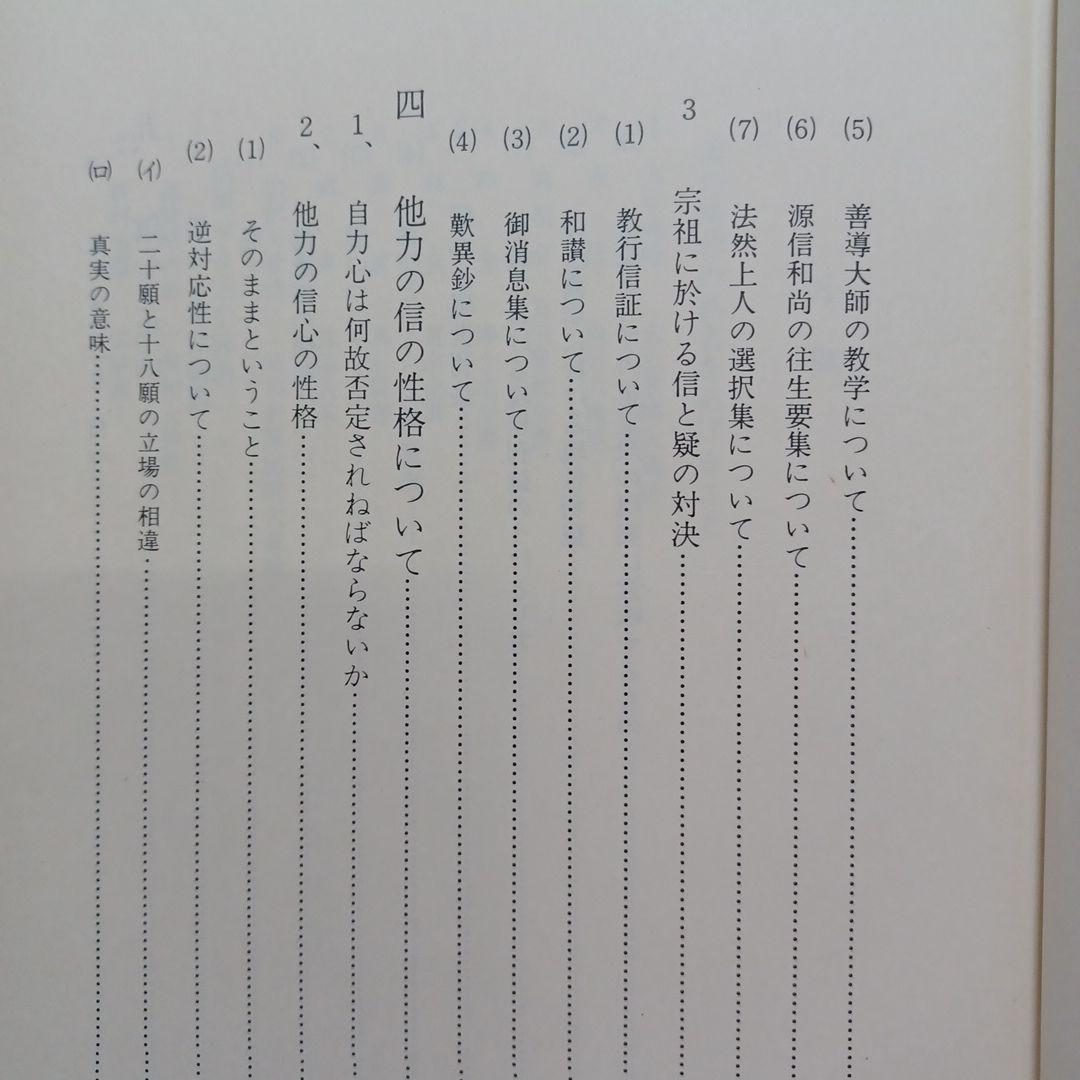 (5) 善導大師の教学について……………………
(6) 源信和尚の往生要集について……………………
(7) 法然上人の選択集について……………………
3 宗祖に於ける信と疑の対決……………………
(1) 教行信証について……………………
(2) 和讃について……………………
(3) 御消息集について……………………
(4) 歎異鈔について……………………
四 他力の信の性格について……………………
1、自力心は何故否定されねばならないか……………………
2、他力の信心の性格……………………
(1) そのままということ……………………
(2) 逆対応性について……………………
(イ) 二十願と十八願の立場の相違……………………
(ロ) 真実の意味……………………